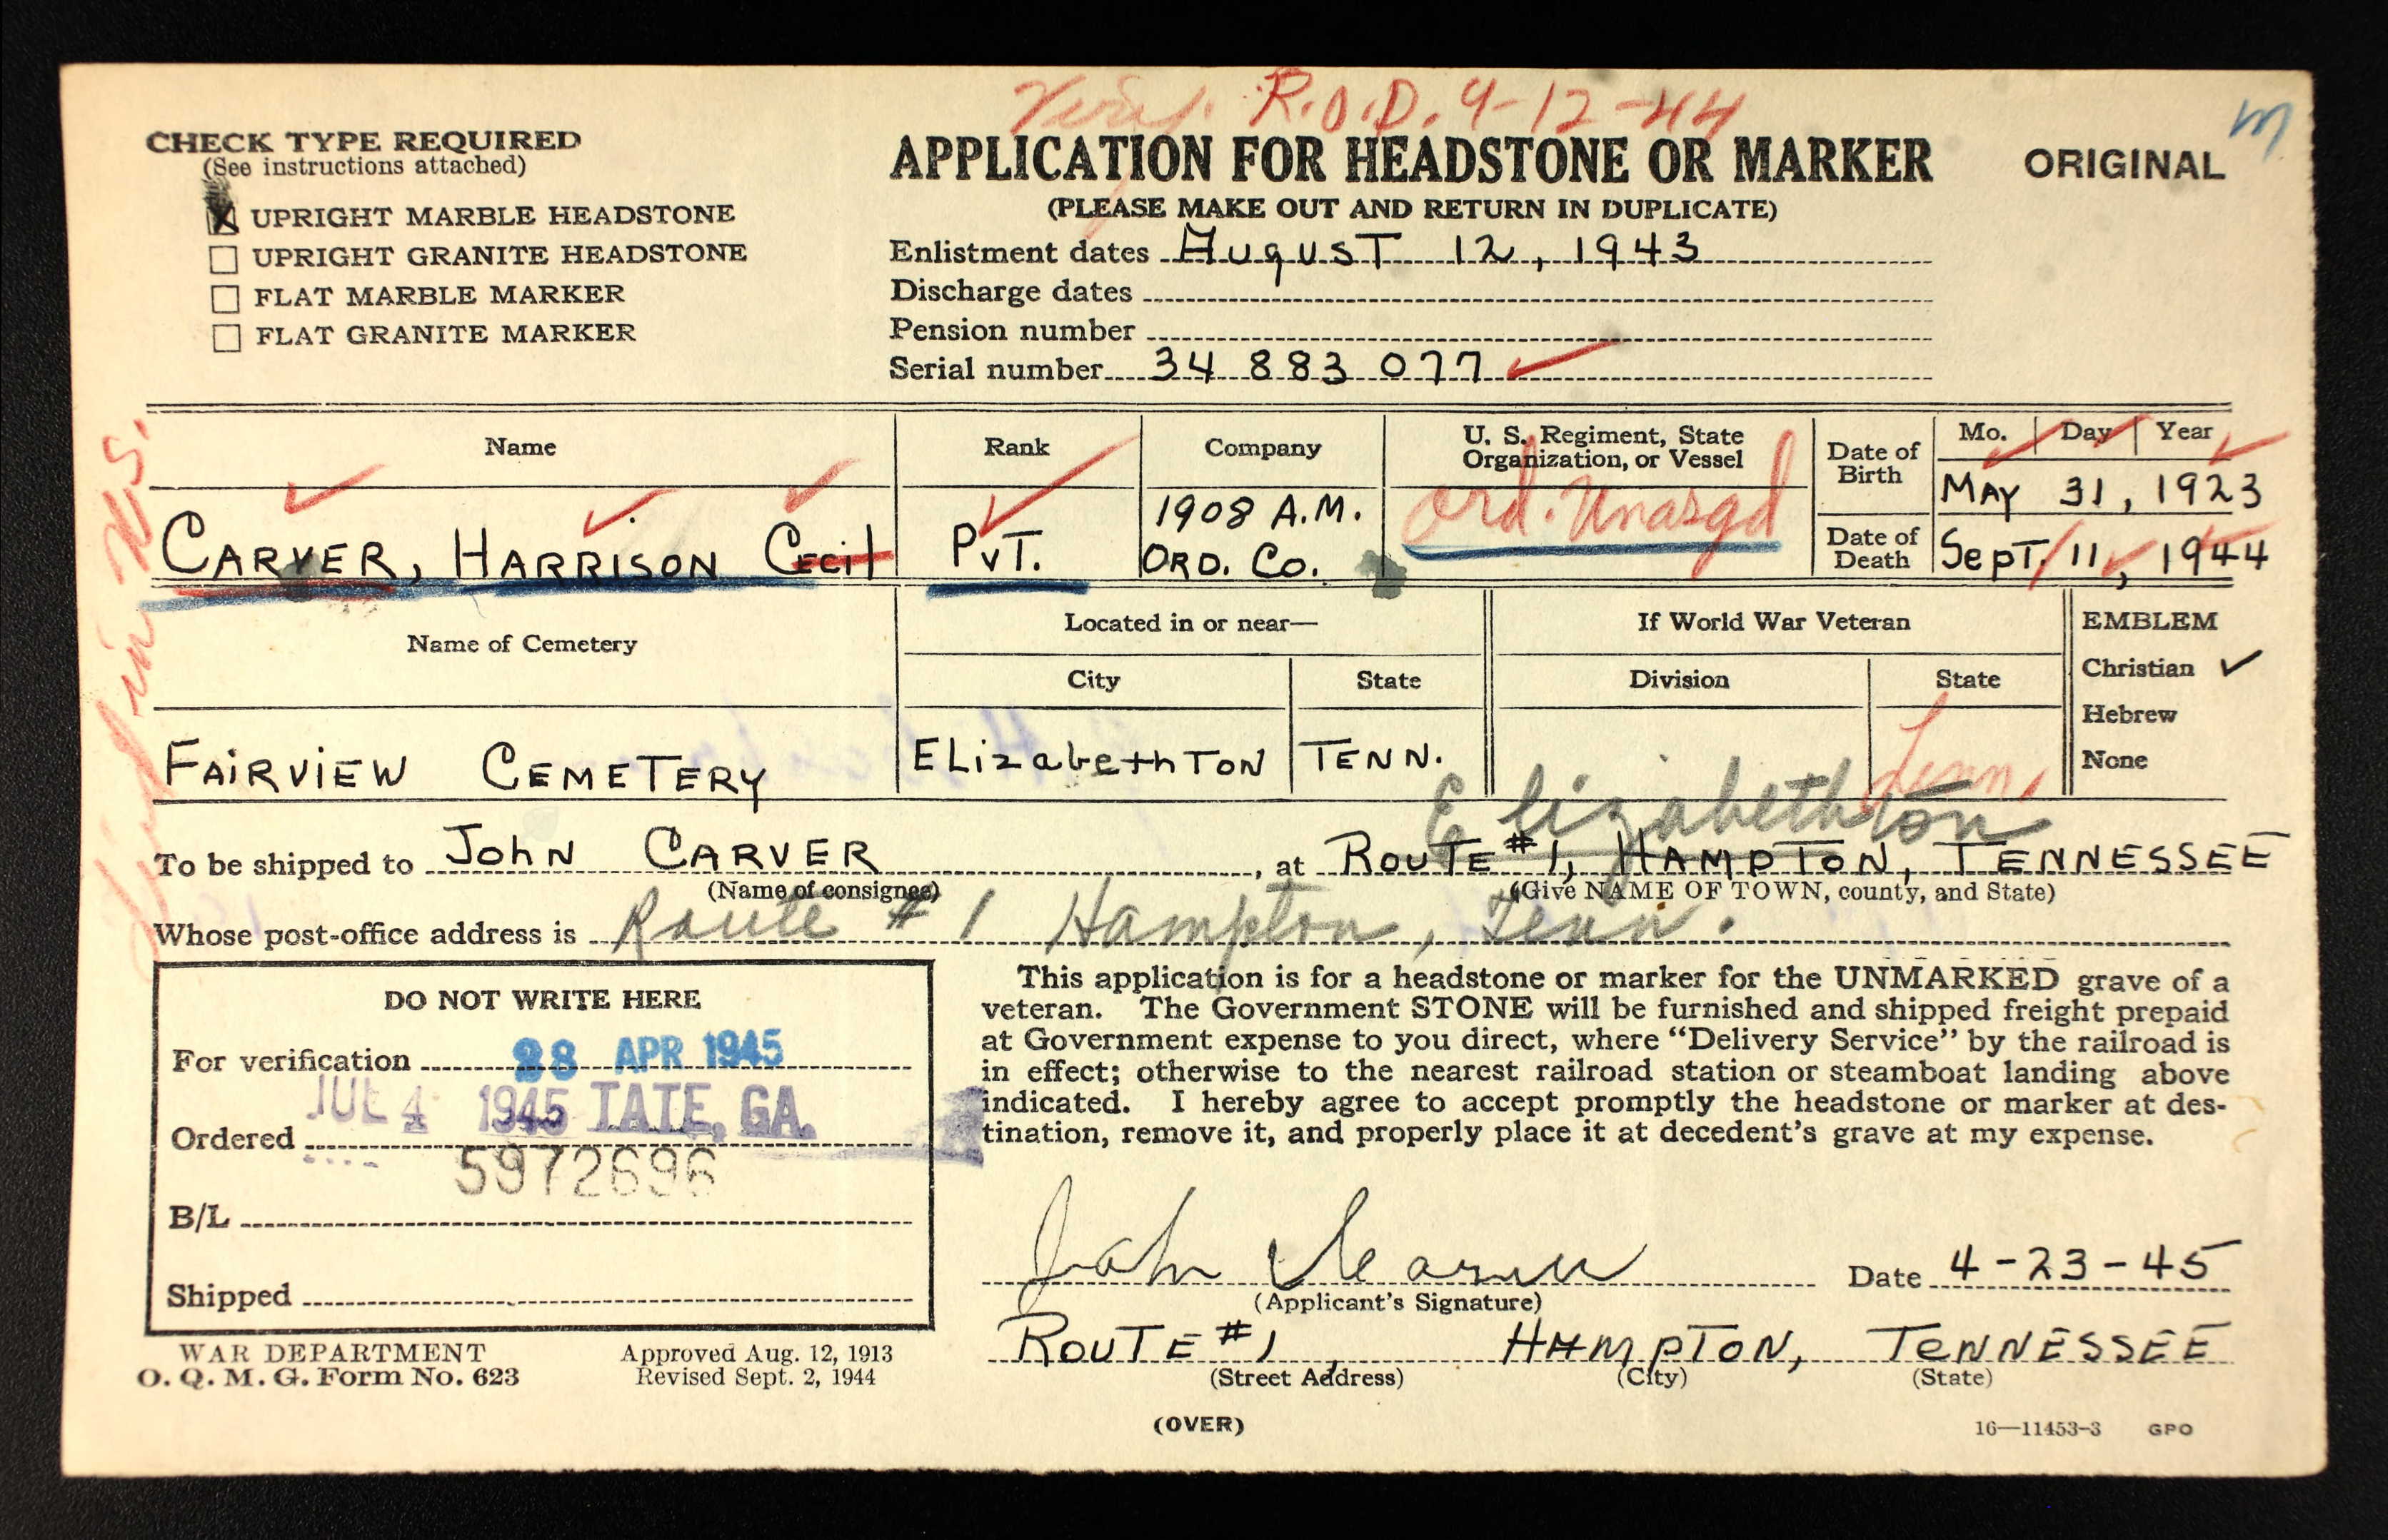 R.O.D. 9-12-44
m
CHECK TYPE REQUIRED
(See instructions attached)
X UPRIGHT MARBLE HEADSTONE
UPRIGHT GRANITE HEADSTONE
FLAT MARBLE MARKER
FLAT GRANITE MARKER
APPLICATION FOR HEADSTONE OR MARKER
ORIGINAL
(PLEASE MAKE OUT AND RETURN IN DUPLICATE)
Enlistment dates August 12, 1943
Discharge dates
Pension number
Serial number 34 883 077
Name
Rank
Company
U. S. Regiment, State
Organization, or Vessel
Date of
Birth
Mo. Day Year
MAY 31, 1923
CARVER, HARRISON Cecil
PVT.
1908 A.M.
ORD. Co.
Ord. Unasgd
Date of
Death
Sept. 11, 1944
Name of Cemetery
Located in or near—
City
State
If World War Veteran
Division
State
EMBLEM
Christian ✓
Hebrew
None
FAIRVIEW CEMETERY
ELizabethTON
TENN.
Tenn.
Elizabethton
To be shipped to John CARVER, at ROUTE #1, HAMPTON, TENNESSEE
(Name of consignee)
(Give NAME OF TOWN, county, and State)
Whose post-office address is Route #1 Hampton, Tenn.
DO NOT WRITE HERE
For verification 28 APR 1945
JUL 4 1945 TATE, GA.
Ordered
5972696
B/L
Shipped
This application is for a headstone or marker for the UNMARKED grave of a
veteran. The Government STONE will be furnished and shipped freight prepaid
at Government expense to you direct, where “Delivery Service” by the railroad is
in effect; otherwise to the nearest railroad station or steamboat landing above
indicated. I hereby agree to accept promptly the headstone or marker at des-
tination, remove it, and properly place it at decedent's grave at my expense.
John Carver
Date 4-23-45
(Applicant's Signature)
ROUTE #1, HAMPTON, TENNESSEE
(Street Address) (City) (State)
WAR DEPARTMENT
O. Q. M. G. Form No. 623
Approved Aug. 12, 1913
Revised Sept. 2, 1944
(OVER)
16—11453-3 GPO